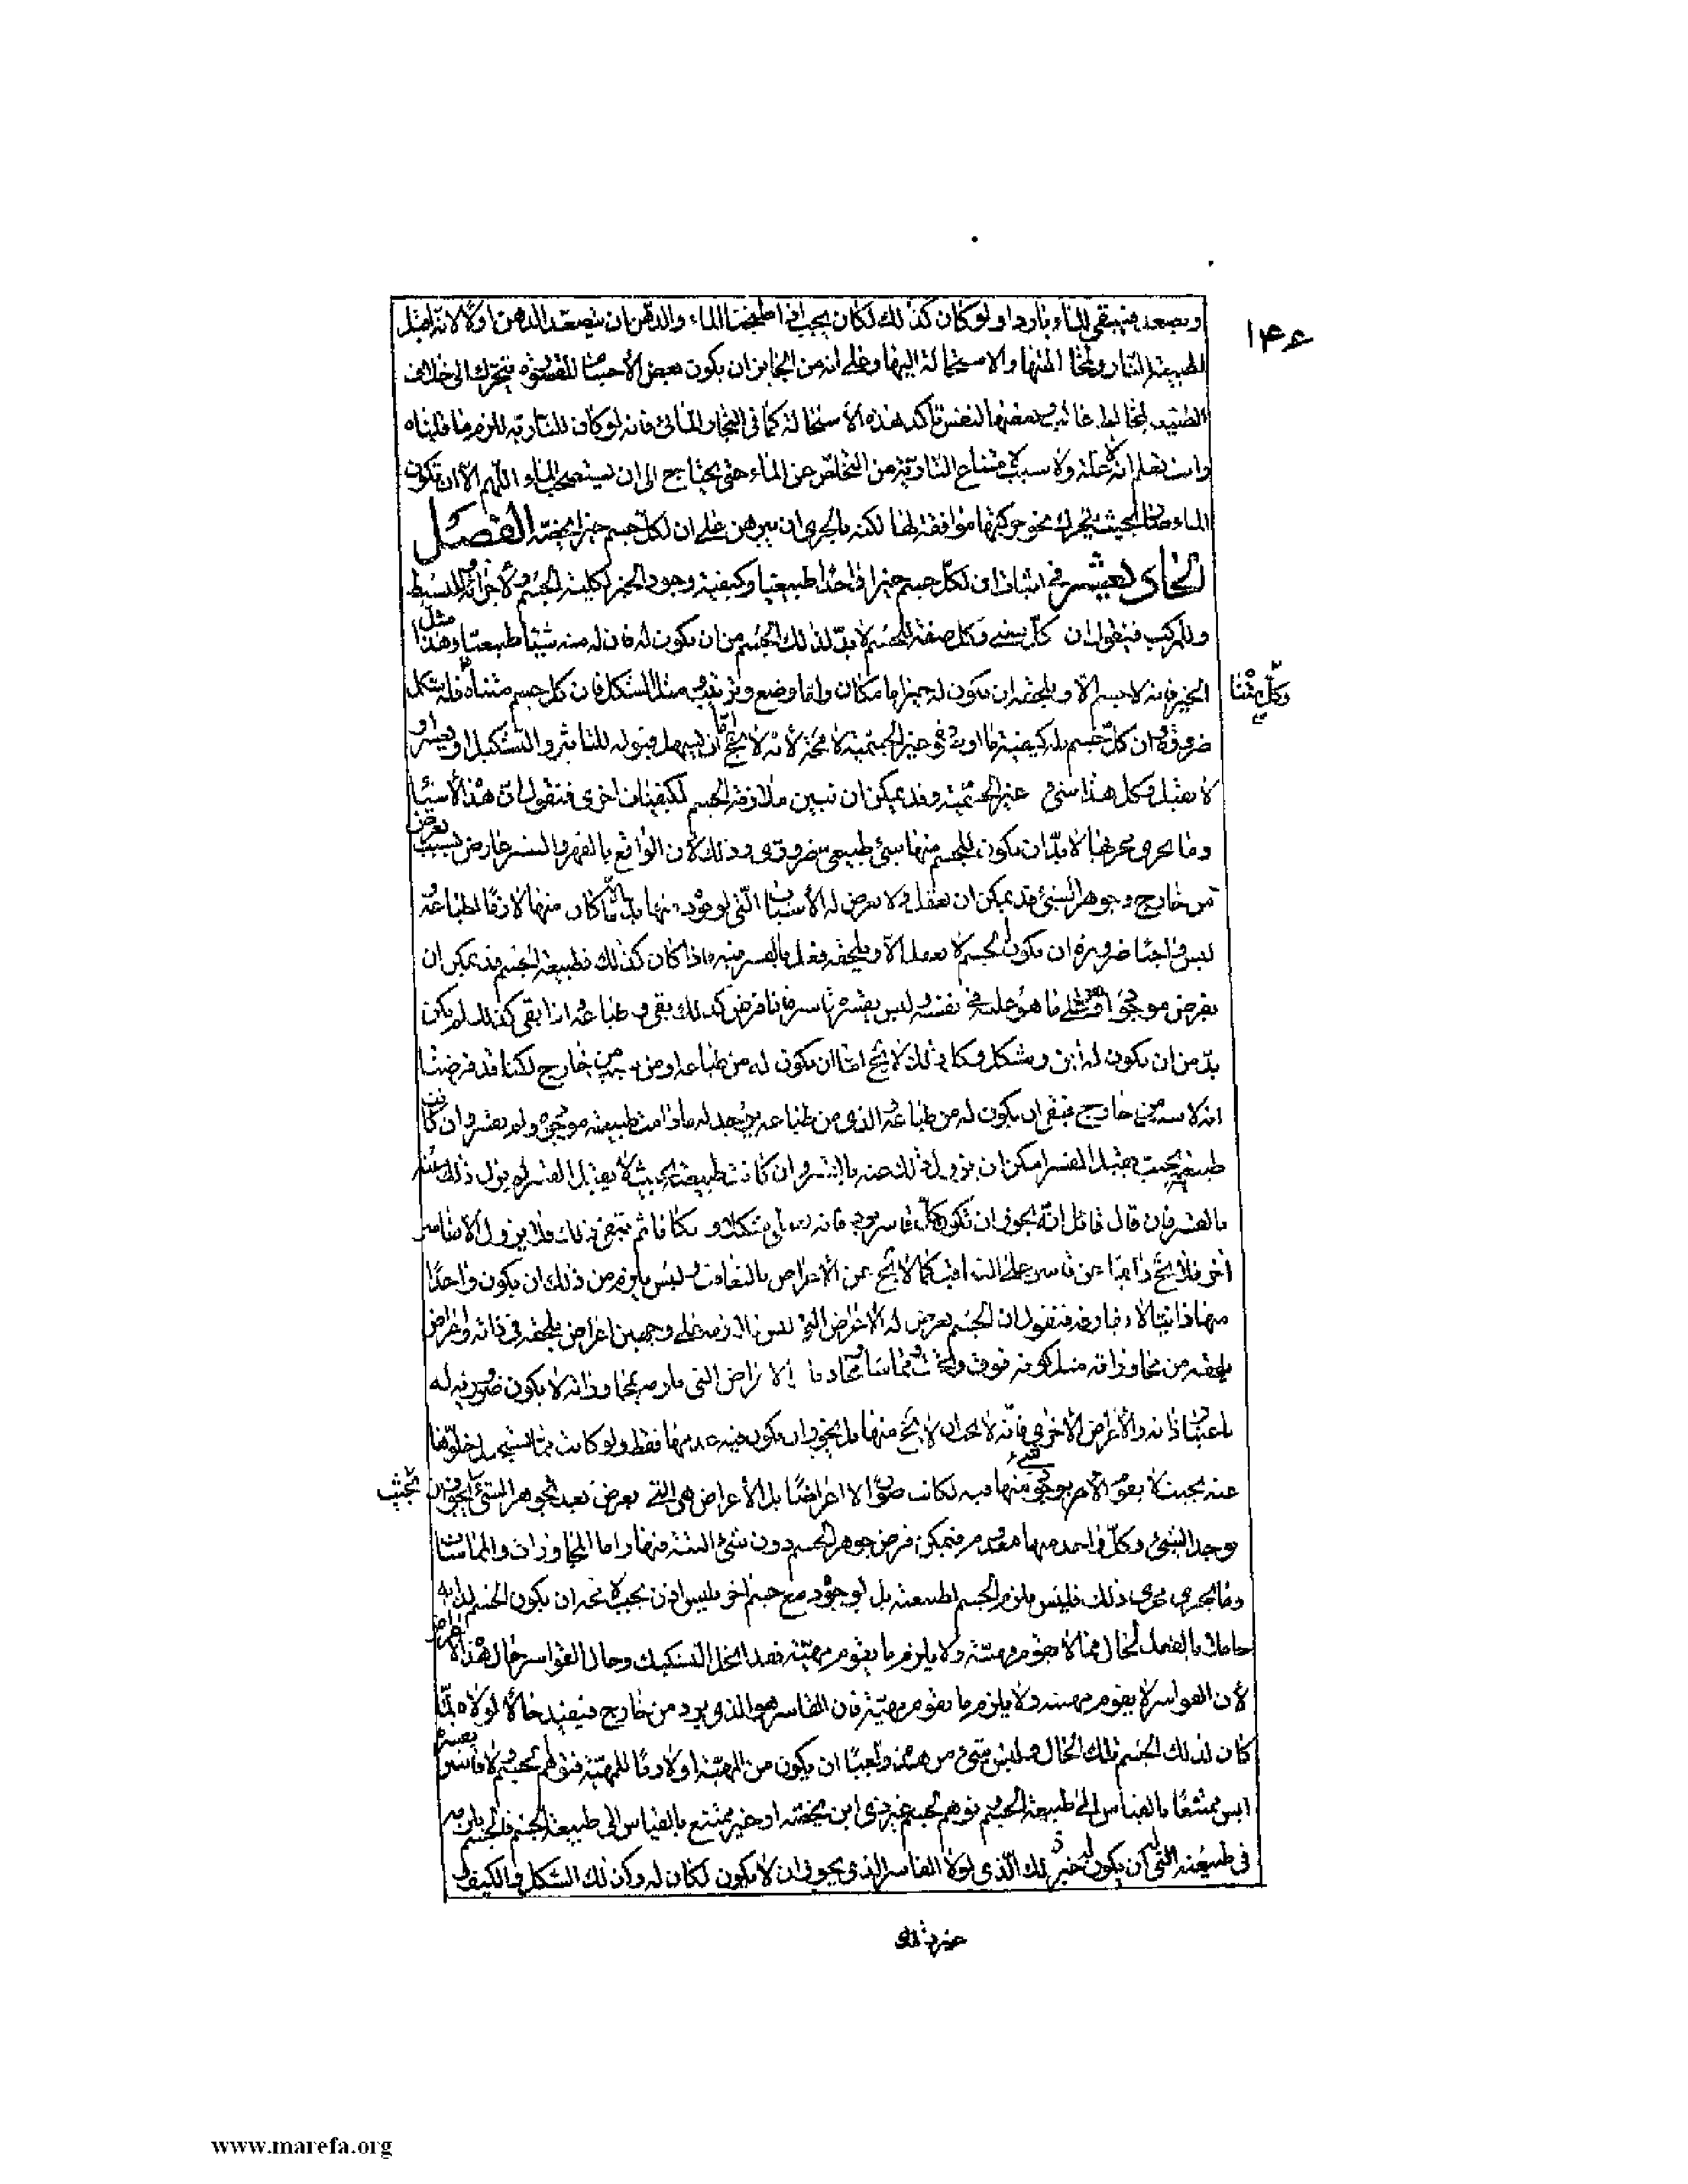 ١۴۶
ويصعد فيبقى الماء باردا ولو كان كذلك لكان يجب اذا طبخت الماء والدهن ان يتصعد الدهن اولا لانه اقبل
لطبيعة النار والاستحالة اليها وعلى انه من الجايز ان يكون بعض الأجسام يتحرك الى خلاف
هذه الأستحالة كما فى البخار المائى فانه لو كان للنارية للزم ما قلناه
وانت تعلم انه لا علة ولا سبب لامتناع النارية من التخلص عن الماء حتى يحتاج الى ان يستصحب الماء اللهم الا ان تكون
الماء صار بحيث يتحرك نحو حركتها موافقة لها لكنه بالحرى ان نبرهن على ان لكل جسم حيزا يخصه الفصل
الحادى العشر فى اثبات ان لكل جسم حيزا واحدا طبيعيا وكيفية وجود الحيز لكلية الجسم ولأجزائه وللبسيط
وللمركب فنقول ان كل شىء وكل صفة للجسم لا بد لذلك الجسم من ان يكون له فان له منه شيئا طبيعيا وهذا مثل
الحيز فانه لا جسم الا ويلحقه ان يكون له حيز اما مكان واما وضع وترتيب ومثل الشكل فان كل جسم متناه فله شكل
وكل متناه
ضرورة وان كل جسم فله كيفية ما او صورة غير الجسمية لا محة لأنه لا يخ اما ان يسهل قبوله للتأثير والتشكيل او يعسر او
لا يقبل وكل هذا شىء غير الجسمية وقد يمكن ان نبين ملازمة الجسم لكيفيات اخرى فنقول ان هذه الأشياء
وما يجرى مجراها لا بد ان يكون للجسم منها شىء طبيعى ضرورى وذلك لأن الواقع بالقهر والقسر عارض بسبب يعرض
من خارج وجوهر الشىء قد يمكن ان يعقل ولا يعرض له الأسباب التى لوجود منها بل ما كان منها لازما لطباعه
ليس واجبا ضرورة ان يكون الجسم لا يعقل الا ويلحقه فعل بالقسر فيه واذا كان كذلك فطبيعة الجسم قد يمكن ان
يفرض موجودة وعلى ما هو عليه فى نفسه وليس يقسره قاسر فاذا فرض كذلك بقى وطباعه اذا بقى كذلك لم يكن
بد من ان يكون له اين وشكل وكل ذلك لا يخ اما ان يكون له من طباعه او من سبب من خارج لكنا قد فرضنا
انه لا سبب من خارج فبقى ان يكون له من طباعه والذى من طباعه يوجد له ما دامت طبيعته موجودة ولم يقسر وان كانت
طبيعته بحيث يقبل القسر امكن ان يزول ذلك عنه بالقسر وان كانت طبيعته بحيث لا يقبل القسر لم يزل ذلك عنه
بالقسر فان قال قائل انه يجوز ان تكون كل قاسر يرد فانه يعطى شكلا و مكانا ثم يبقى ذلك فلا يزول الا بقاسر
اخر فلا يخ دائما عن قاسر على التعاقب كما لا يخ عن الأعراض بالتعاقب وليس يلزم من ذلك ان يكون واحدا
منها ذاتيا لا يفارقه فنقول ان الجسم يعرض له الاعراض التى ليس لازمه على وجهين اعراض يلحقه فى ذاته واعراض
يلحقه من مجاوراته مثل كونه فوق وتحت ومماسا ومحاذيا والاعراض التى يلزمه بمجاوراته لا يكون ضرورية له
باعتبار ذاته والأعراض الأخرى فانه لا يجب ان لا يخ منها بل يجوز ان يكون فيه منها فقط ولو كانت مما يستحيل خلوه
عنه بحيث لا يقوم الا مع وجود شىء منها فيه لكانت صورا لا اعراضا بل الأعراض هى التى يعرض بعد تجوهر الشىء فيجوز ان بحيث
يوجد الشىء وكل واحد منها معدوم فيمكن فرض جوهر الجسم دون شىء البتة منها واما المجاورات والمماسات
وما يجرى مجرى ذلك فليس يلزم الجسم لطبيعته بل لوجوده مع جسم اخر فليس اذن يجب لا محة ان يكون الجسم لذاته
حاملا بالفعل لحال مما لا يقوم مهيته ولا يلزم ما يقوم مهيته فقد انحل التشكيك وحال القواسر حال هذه الأعراض
لأن القواسر لا يقوم مهيته ولا يلزم ما يقوم مهيته فان القاسر هو الذى يرد من خارج فيفيد حالا لولاه لما
كان لذلك الجسم تلك الحال وليس شىء من هذه واجبا ان يكون من المهية او لازما للمهية فتوهم جسم لا قاسر يقسره
ليس ممتنعا بالقياس الى طبيعة الجسم وتوهم جسم غير ذى اين يخصه او حيز ممتنع بالقياس الى طبيعة الجسم فالجسم يلزمه
فى طبيعته التى له ان يكون له حيز ذلك الذى لولا القاسر الذى يجوز ان لا يكون لكان له وكذلك الشكل والكيف و
www.marefa.org